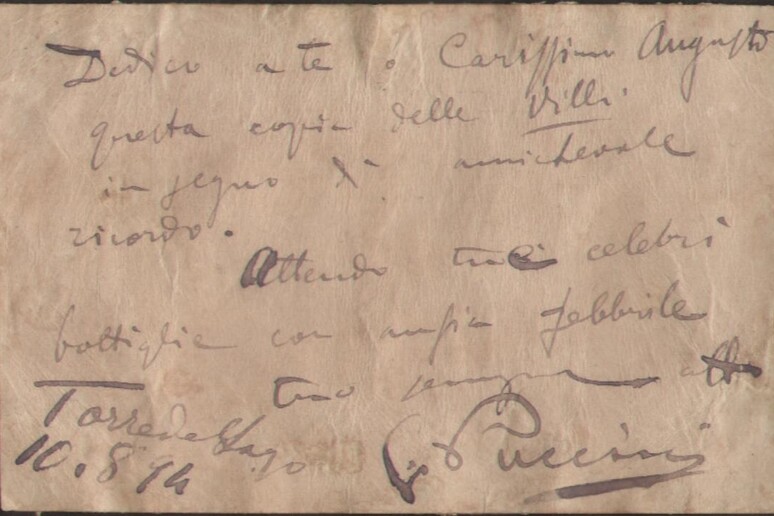 Dedico a te o Carissimo Augusto
questa copia delle Villi
in segno di amichevole
ricordo.
Attendo tue celebri
bottiglie con ansia febbrile
tuo sempre aff
Torre del Lago
10.8 94 G. Puccini